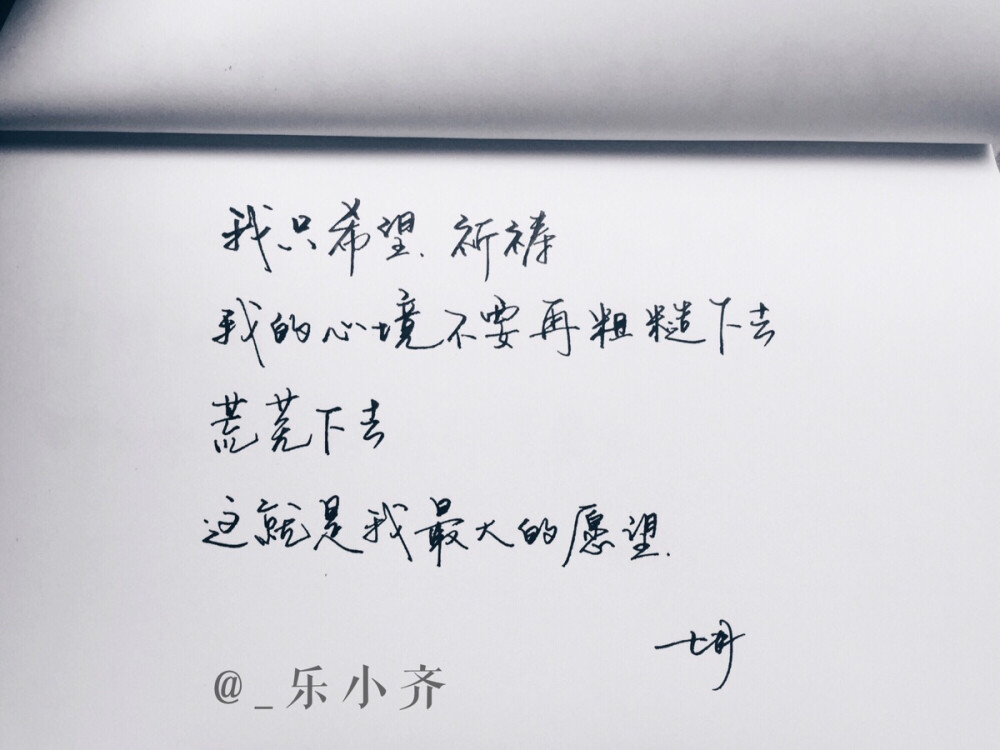 我只希望.祈祷
我的心境不要再粗糙下去
荒芜下去
这就是我最大的愿望.
@_乐小齐